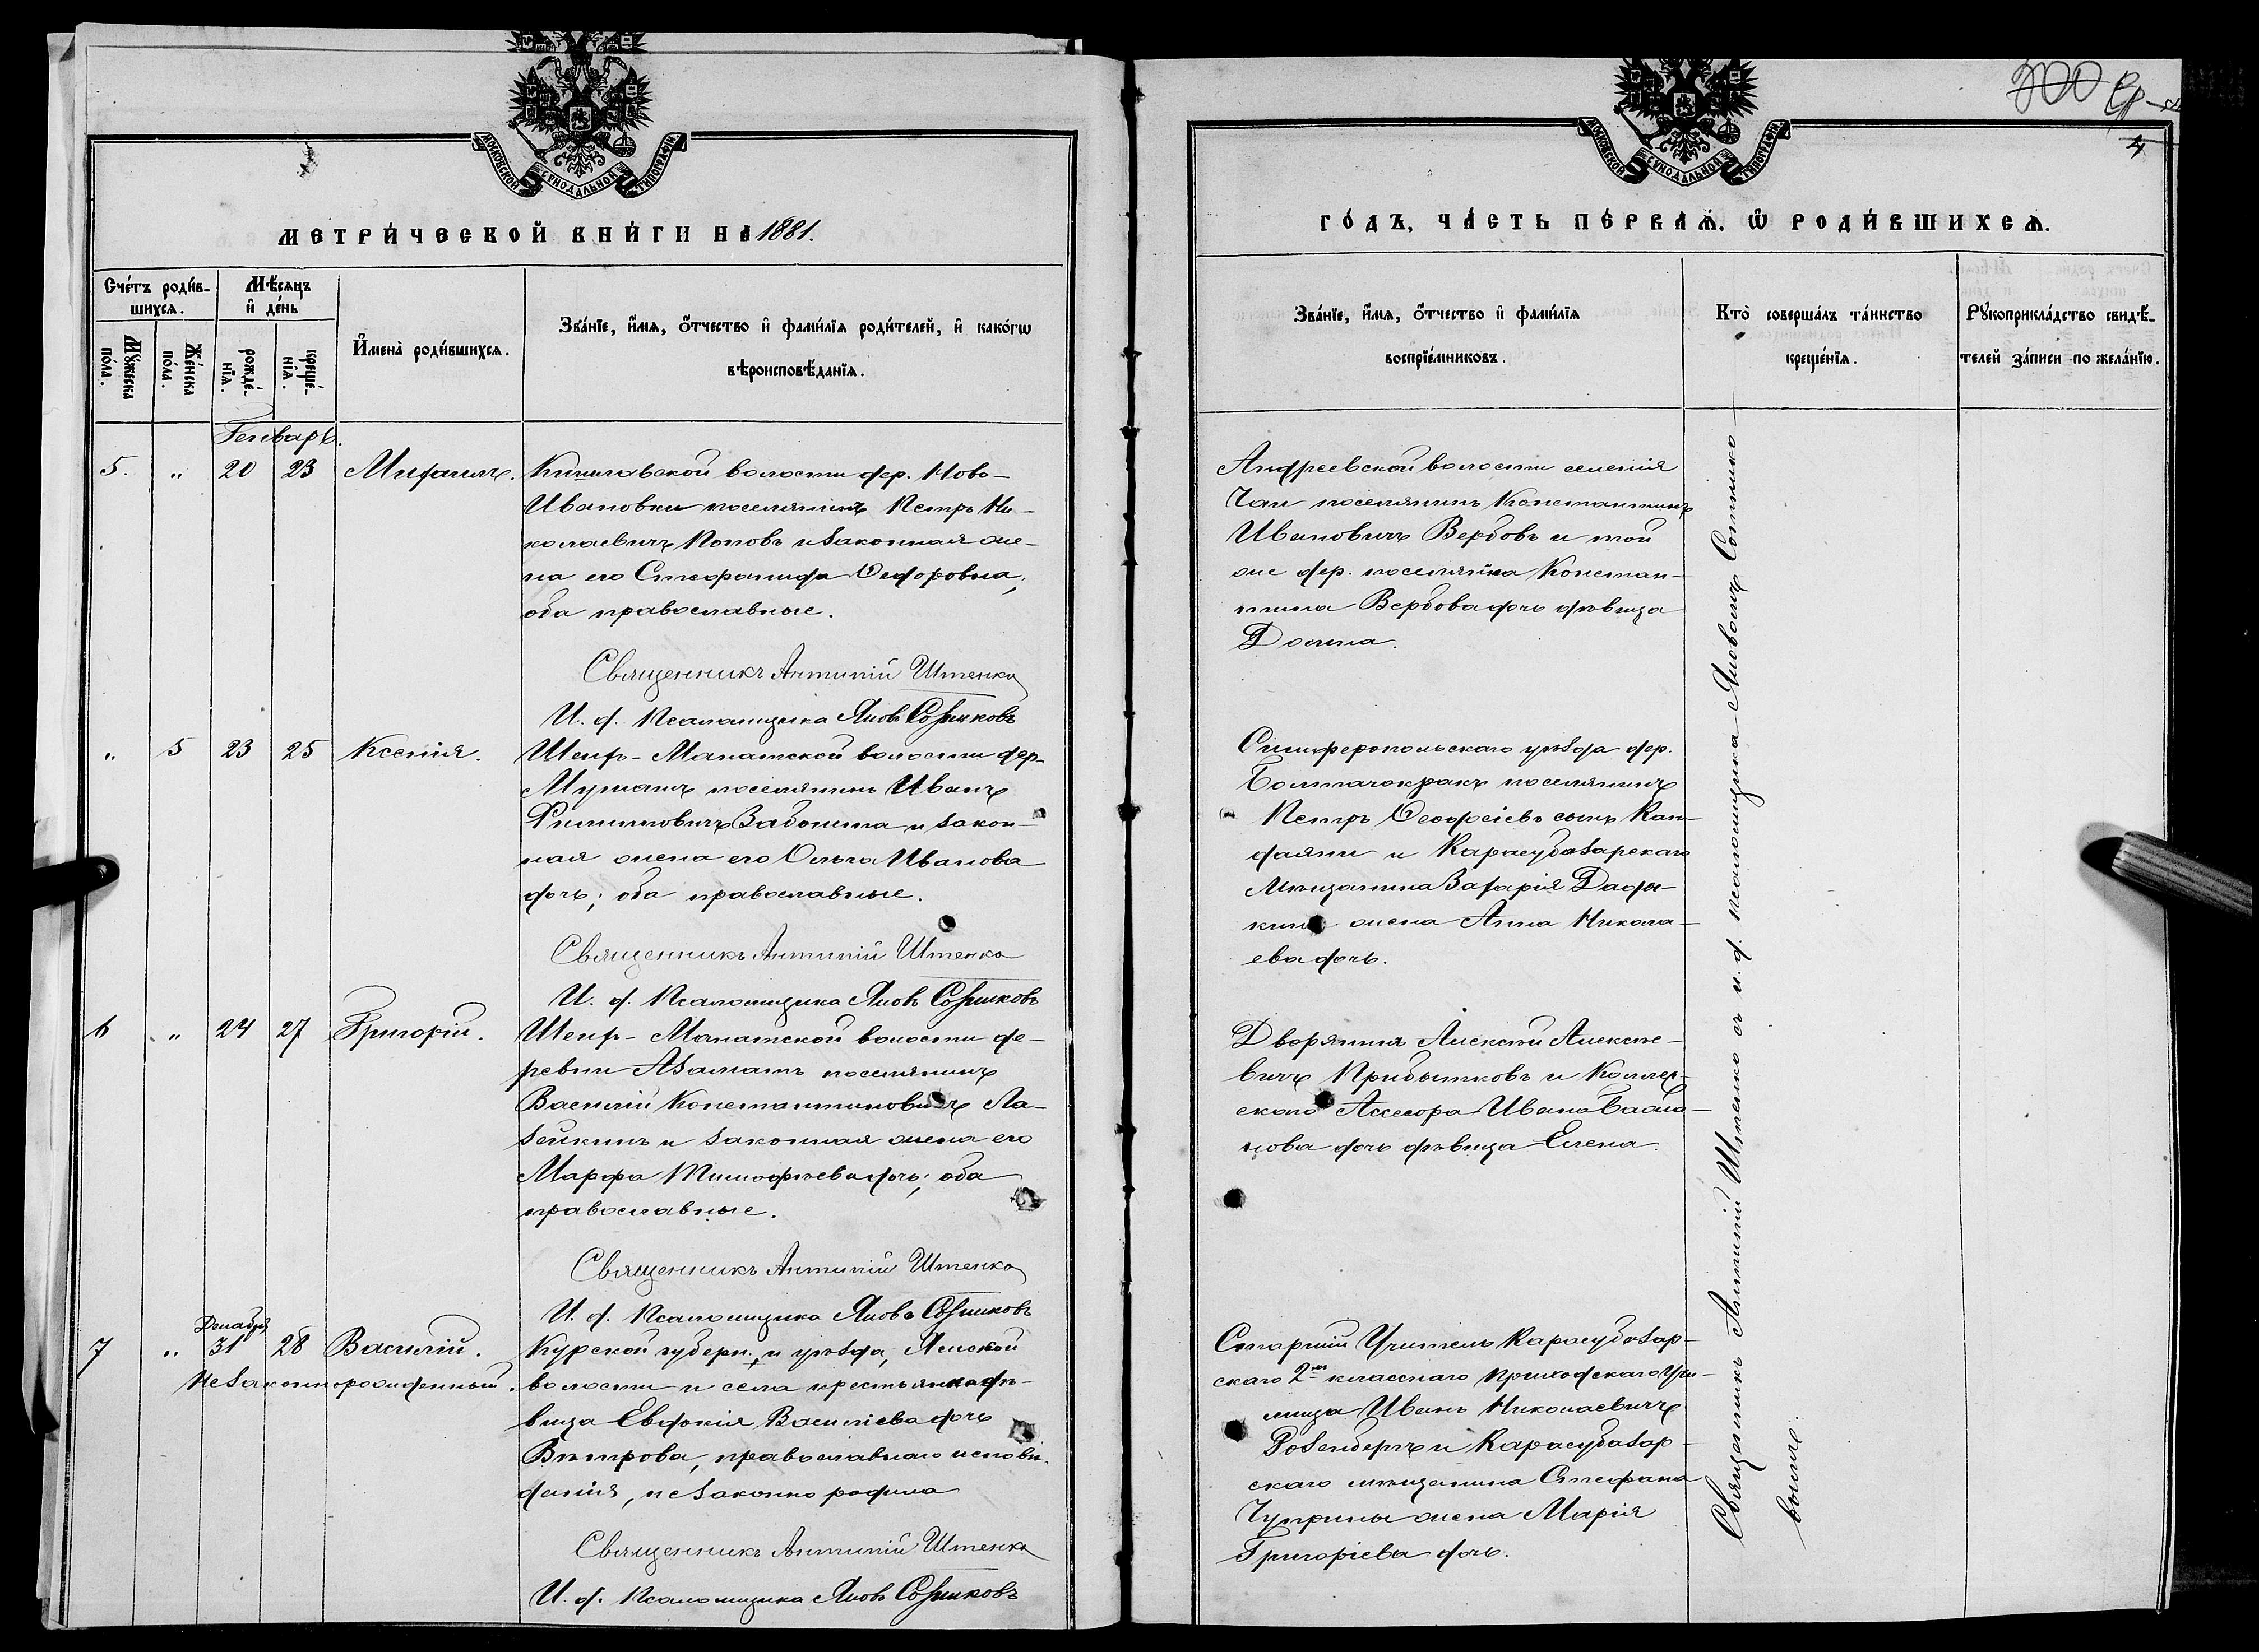 МОСКОВСКОЙ СѴНОДАЛЬНОЙ ТИПОГРАФІИ
МЕТРИ́ЧЕСКОЙ КНИ́ГИ НА 1881.
Сче́тъ роди́в-
шихсѧ.
Мѣ́сѧцъ
и҆ де́нь
Мꙋ́жеска
по́ла.
Же́нска
по́ла.
рожде́-
нїѧ.
креще́-
нїѧ.
И҆мена̀ роди́вшихсѧ.
Зва́нїе, и҆́мѧ, ѻ҆́тчество и҆ фами́лїѧ роди́телей, и҆ како́гѡ
вѣроисповѣ́данїѧ.
Генварь.
5. " 20 23 Михаилъ.
Кишлавской волости дер. Ново-
Ивановки поселянинъ Петръ Ни-
колаевичъ Поповъ и законная же-
на его Стефанида Ѳедоровна,
оба православные.
Священникъ Антипій Штенко
И. д. Псаломщика Яковъ Сотниковъ
" 5 23 25 Ксенія.
Шейх-Монакской волости дер.
поселянинъ Иванъ
Филипповичъ Заболина и закон-
ная жена его Ольга Иванова
дочь; оба православные.
Священникъ Антипій Штенко
И. д. Псаломщика Яковъ Сотниковъ
6 " 24 27 Григорій.
Шейх-Монакской волости де-
ревни Азаматъ поселянинъ
Василій Константиновичъ Ла-
зейкинъ и законная жена его
Марфа Тимофѣева дочь; оба
православные.
Священникъ Антипій Штенко
И. д. Псаломщика Яковъ Сотниковъ
Декабря
7 " 31 28 Василій.
Незаконнорожденный.
Курской губерн., и уѣзда, Ямской
волости и села крестьянка дѣ-
вица Евдокія Василіева дочь
Вѣтрова, православнаго исповѣ-
данія, незаконно родила
Священникъ Антипій Штенко
И. д. Псаломщика Яковъ Сотниковъ
700
4
МОСКОВСКОЙ СѴНОДАЛЬНОЙ ТИПОГРАФІИ
ГО́ДЪ, ЧА́СТЬ ПЕ́РВАѦ, Ѡ҆ РОДИ́ВШИХСѦ.
Зва́нїе, и҆́мѧ, ѻ҆́тчество и҆ фами́лїѧ
воспрїе́мниковъ.
Кто̀ соверша́лъ та́инство
креще́нїѧ.
Рꙋкоприкла́дство свидѣ́-
телей за́писи по жела́нїю.
Андреевской волости селенія
Чаи поселянинъ Константинъ
Ивановичъ Вербовъ и той
же дер. поселянина Констан-
тина Вербова дочь дѣвица
Домна.
Симферопольскаго уѣзда дер.
Болтачокракъ поселянинъ
Петръ Ѳеодосіевъ сынъ Кан-
даяни и Карасубазарскаго
мѣщанина Захарія Дады-
кина жена Анна Никола-
ева дочь.
Дворянинъ Алексѣй Алексѣе-
вичъ Прибытковъ и Коллеж-
скаго Ассесора Ивана
нова дочь дѣвица Елена.
Старшій Учитель Карасубазар-
скаго 2хъ класснаго Приходскаго Учи-
лища Иванъ Николаевичъ
Розенбергъ и Карасубазар-
скаго мѣщанина Стефана
Чуприны жена Марія
Григоріева дочь.
Священникъ Антипій Штенко съ и. д. псаломщика Яковомъ Сотнико-
вымъ.